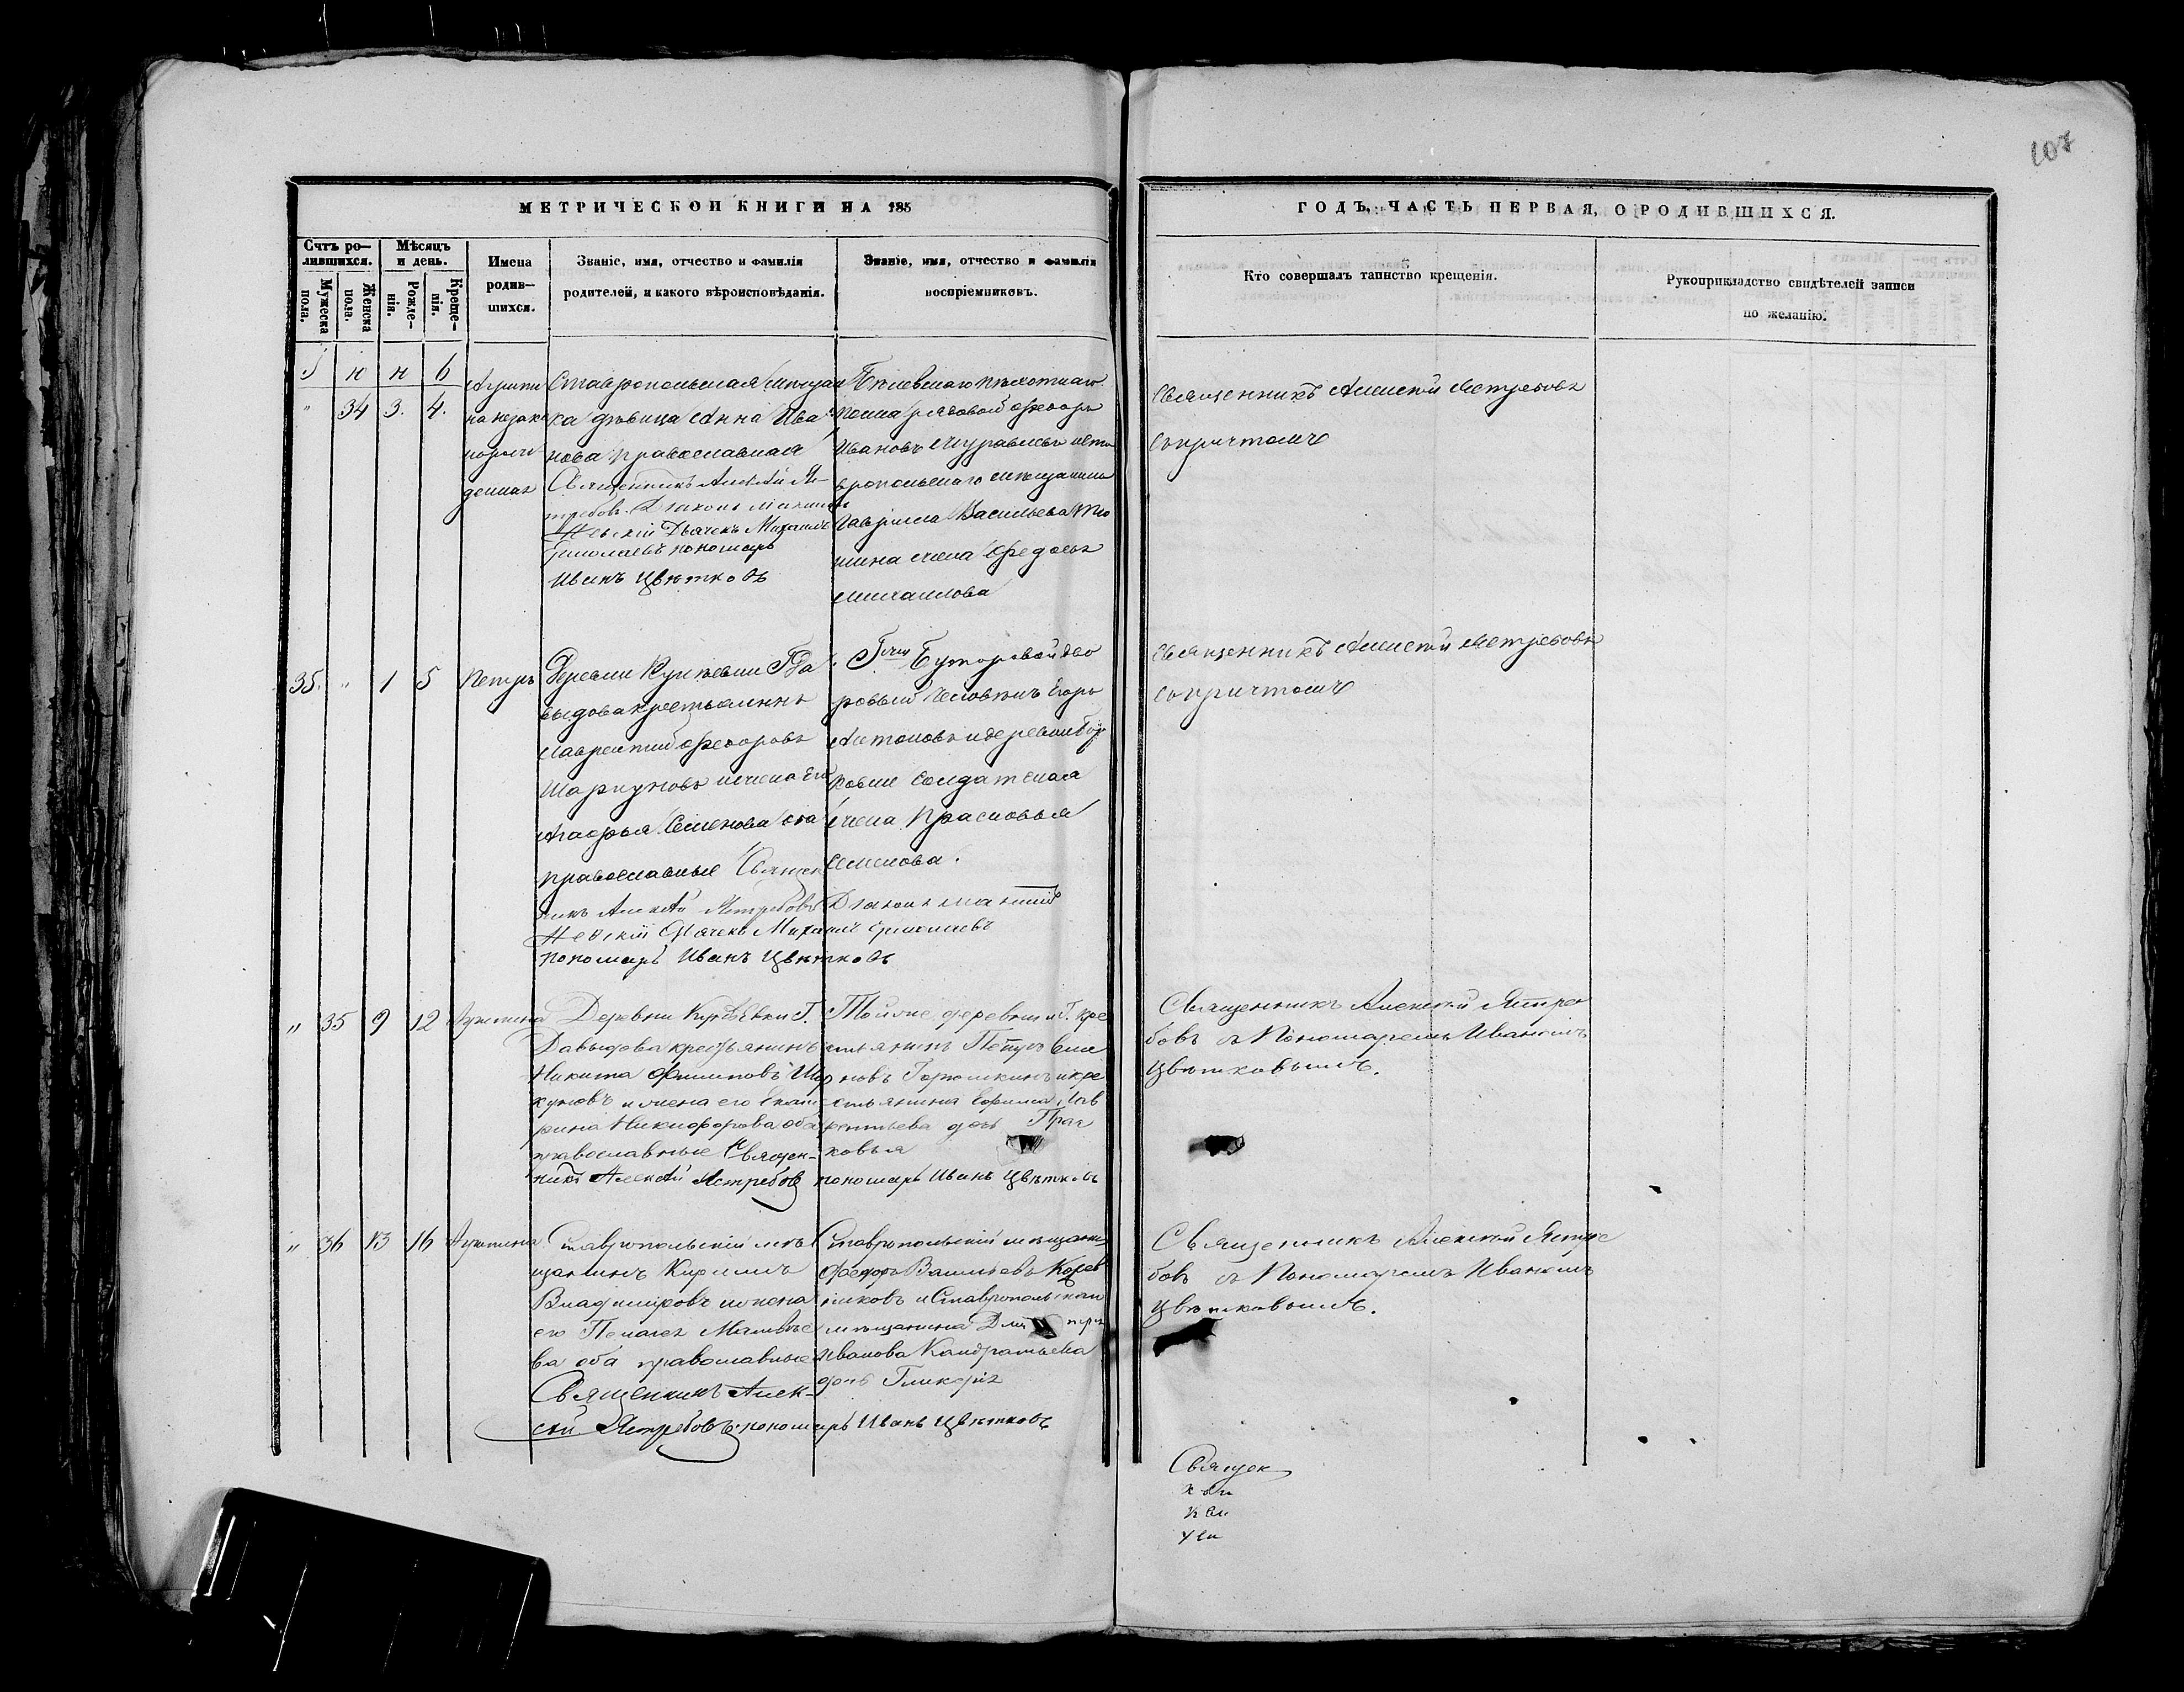 107
МЕТРИЧЕСКОИ КНИГИ НА 185
ГОДЪ, ЧАСТЬ ПЕРВАЯ, О РОДИВШИХСЯ.
Счтъ ро-
дившихся.
Мужеска
пола.
Женска
пола.
Мѣсяцъ
и день.
Рожде-
нія.
Креще-
нія.
Имена
родив-
шихся.
Званіе, имя, отчество и фамилія
родителей, и какого вѣроисповѣданія.
Званіе, имя, отчество и фамилія
воспріемниковъ.
Кто совершалъ таинство крещенія.
Рукоприкладство свидѣтелей записи
по желанію.
І ю н ь
" 34 3. 4.
Агрипи
на незако
норож
денная
Ставропольская мѣщан
ка дѣвица Анна Ива
нова православная
Священникъ Алексѣй Я-
стребовъ Діаконъ
Невскій Дьячекъ Михаилъ
Ермолаевъ пономарь
Иванъ Цвѣтковъ
пѣхотнаго
полка рядовой Ѳеодоръ
Ивановъ Журавлевъ и Ста
вропольскаго мѣщанина
Гаврила Васильева
шина жена Ѳедосья
Михайлова
Священникъ Алексѣй Ястребовъ
съ причтомъ
35. " 1 5
Петръ
Деревни Курѣевки Г. Да
выдова крестьянинъ
Лаврентій Ѳеодоровъ
Шаркуновъ и жена его
Агафья Семенова оба
православные Священ
никъ Алексѣй Ястребовъ Діаконъ
Невскій Дьячекъ Михаилъ Ермолаевъ
пономарь Иванъ Цвѣтковъ
Гжи Буторовой дво
ровый человѣкъ Егоръ
Антоновъ и деревни
ковки солдатская
жена Прасковья
Семенова.
Священникъ Алексѣй Ястребовъ
съ причтомъ
" 35 9 12
Акулина
Деревни Курѣевки Г.
Давыдова крестьянинъ
Никита Филиповъ Шар
куновъ и жена его Екате
рина Никифорова оба
православные Священ-
никъ Алексѣй Ястребовъ пономарь Иванъ Цвѣтковъ
Той же деревни и Г. кре
стьянинъ Петръ Семе
новъ Горюшкинъ и кре
стьянина Ефима Лав
рентьева дочь Прас
ковья
Священникъ Алексѣй Ястре
бовъ съ Пономаремъ Иваномъ
Цвѣтковымъ.
" 36 13 16
Акулина
Ставропольскій мѣ
щанинъ Кирилъ
Владимировъ и жена
его Пелагея Матвѣе
ва оба православные
Священникъ Алек-
сѣй Ястребовъ пономарь Иванъ Цвѣтковъ
Ставропольскій мѣщанин
Ѳедоръ Васильевъ
никовъ и Ставропольскаго
мѣщанина Дмитрія
Иванова Кандратьева
дочь Гликерія
Священникъ Алексѣй Ястре
бовъ съ Пономаремъ Иваномъ
Цвѣтковымъ.
Священ